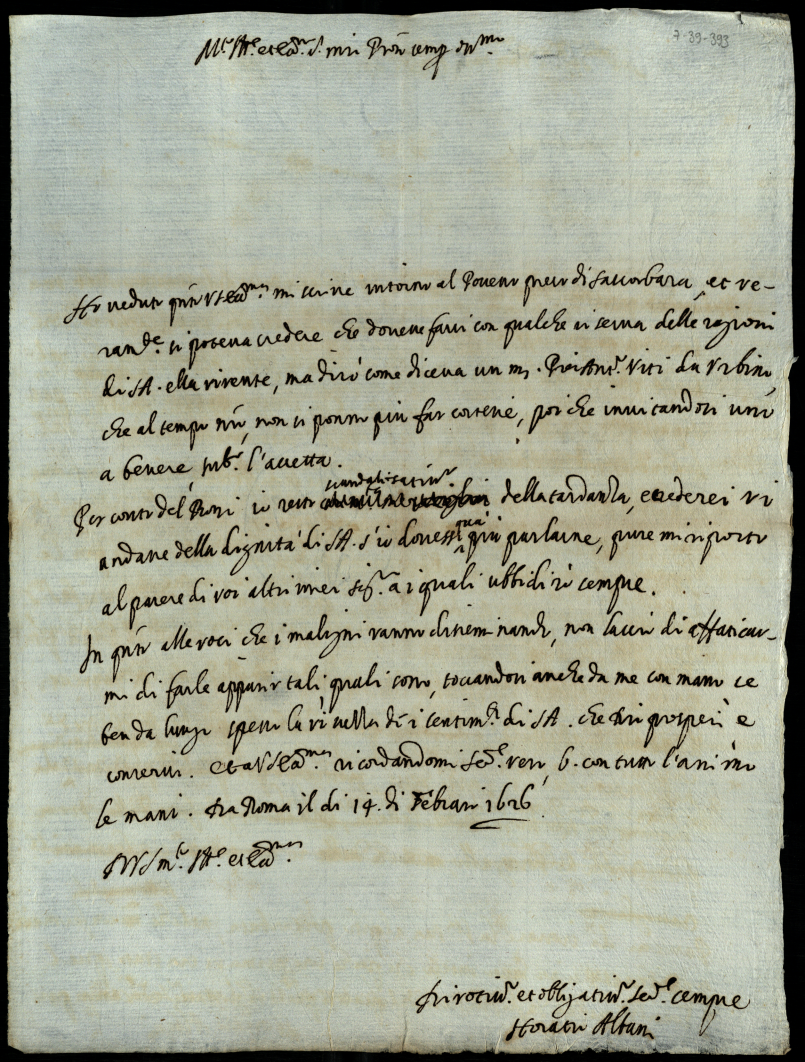 7-39-393
Mto Ill.e et Ecc.mo S.r mio Pron semp.
Ho veduto q.nto V S Ecc.ma mi scrive intorno al Povero prete di Sascorbara, et ve-
ram.te si poteva credere che dovesse farsi con qualche riserva delle ragioni
di SA. ella vivente, ma dirò come diceva un m. Pier Ant.o Viti da Urbino,
che al tempo n.ro, non si ponno più far cortesie, poi che invitandosi uno
a bevere sub.o l'accetta.
Per conto del Rossi io resto scandalizatiss.o della tardanza, e crederei vi
andasse della dignità di SA. s'io dovessi quà più parlarne, pure mi riporto
al parere di voi altri miei Sig.ri a i quali ubbidirò sempre.
In q.nto alle voci che i maligni vanno diseminando, non lascio di affaticar-
mi di farle apparir tali, quali sono, toccandosi anche da me con mano se
ben da lungi spesso la di i sentim.ti di SA. che Dio prosperi e
conservi. et a V S Ecc.ma ricordandomi Se.re vero, b. con tutto l'animo
le mani. Da Roma il di 14. di Febraro 1626
D V S m.to Ill.e et Ecc.ma
Divotiss.o et obligatiss.o Se.re sempre
Horatio Albani